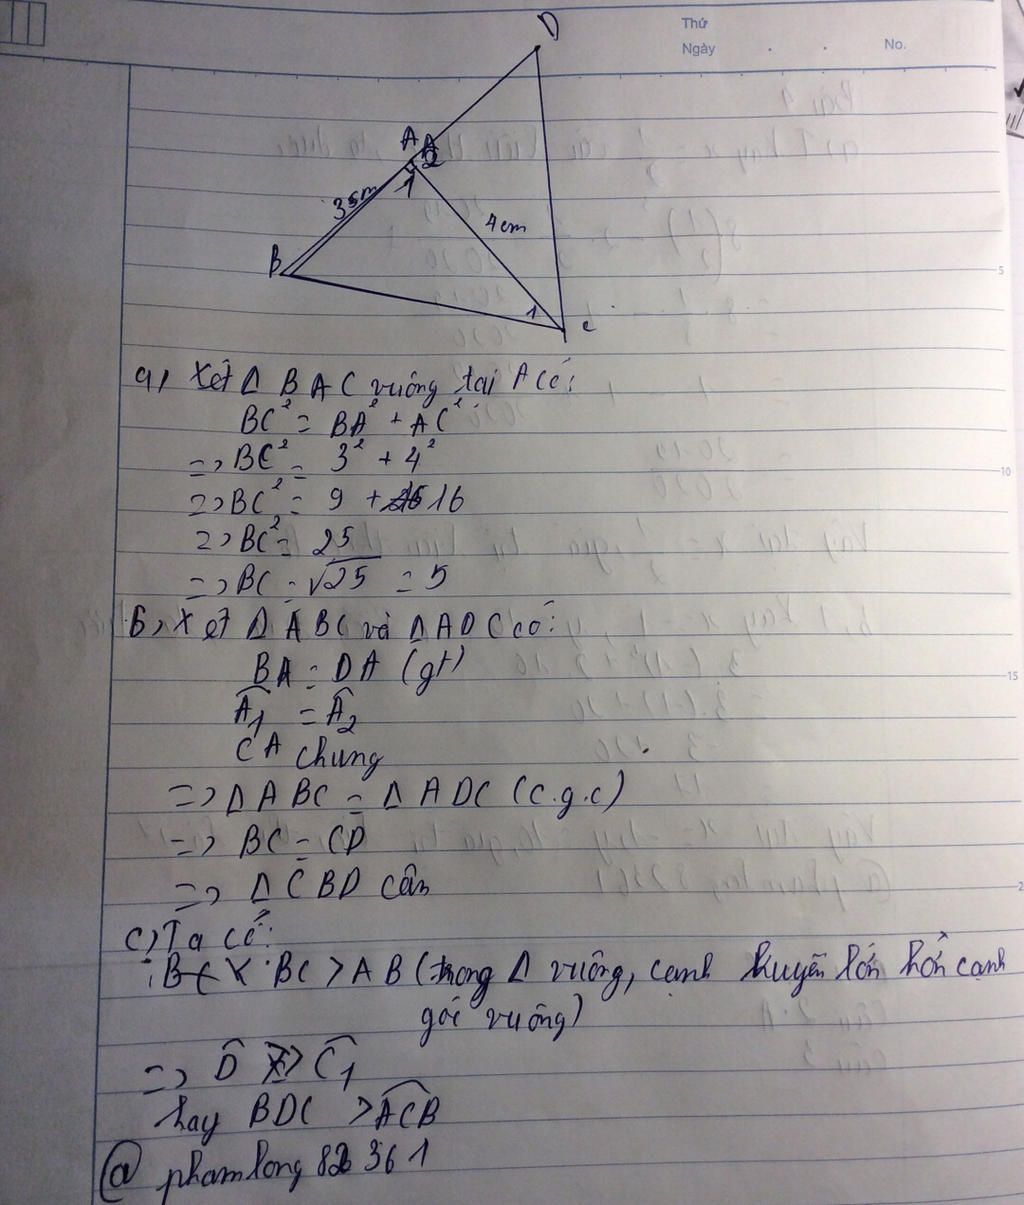 Thứ
Ngày . . No.
D
A A
2
1
3cm
4cm
B
1
C
5
a, Xét Δ BAC vuông tại A có:
BC² = BA² + AC²
=> BC² = 3² + 4²
=> BC² = 9 + 16
=> BC² = 25
10
=> BC = √25 = 5
b, Xét Δ ABC và Δ ADC có:
BA = DA (gt)
15
Â1 = Â2
CA chung
=> Δ ABC = Δ ADC (c.g.c)
=> BC = CD
=> Δ CBD cân
c, Ta có:
BC > AB (trong Δ vuông, cạnh huyền lớn hơn cạnh
góc vuông)
=> D̂ > Ĉ1
hay BDC > ACB
@ phamlong82361